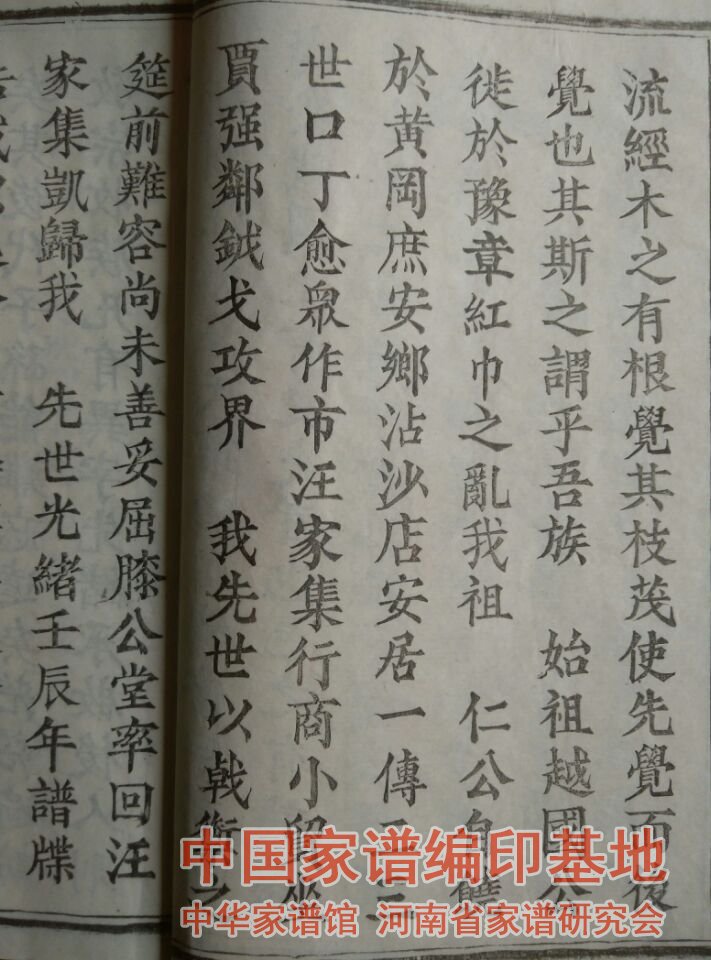 流經木之有根覺其枝茂使先覺而後
覺也其斯之謂乎吾族　始祖越國公
徙於豫章紅巾之亂我祖　仁公自饒
於黄岡庶安鄉沾沙店安居一傳二三
世口丁愈眾作市汪家集行商小貿坐
賈强鄰鉞戈攻界　我先世以戟衛之
筵前難容尚未善妥屈膝公堂率回汪
家集凱歸我　先世光緒壬辰年譜牒
中国家谱编印基地
中华家谱馆 河南省家谱研究会